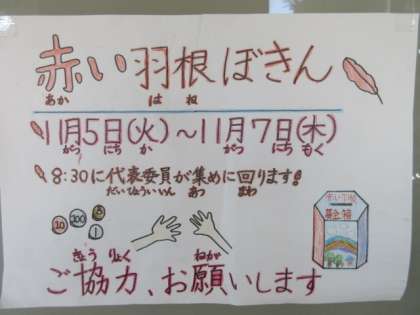 赤い羽根ぼきん
あか はね
11月5日(火)〜11月7日(木)
がつ にち か がつ にち もく
8:30に代表委員が集めに回ります!
だいひょういいん あつ まわ
10 100 1
赤い羽根
募金箱
きょうりょく ねが
ご協力、お願いします